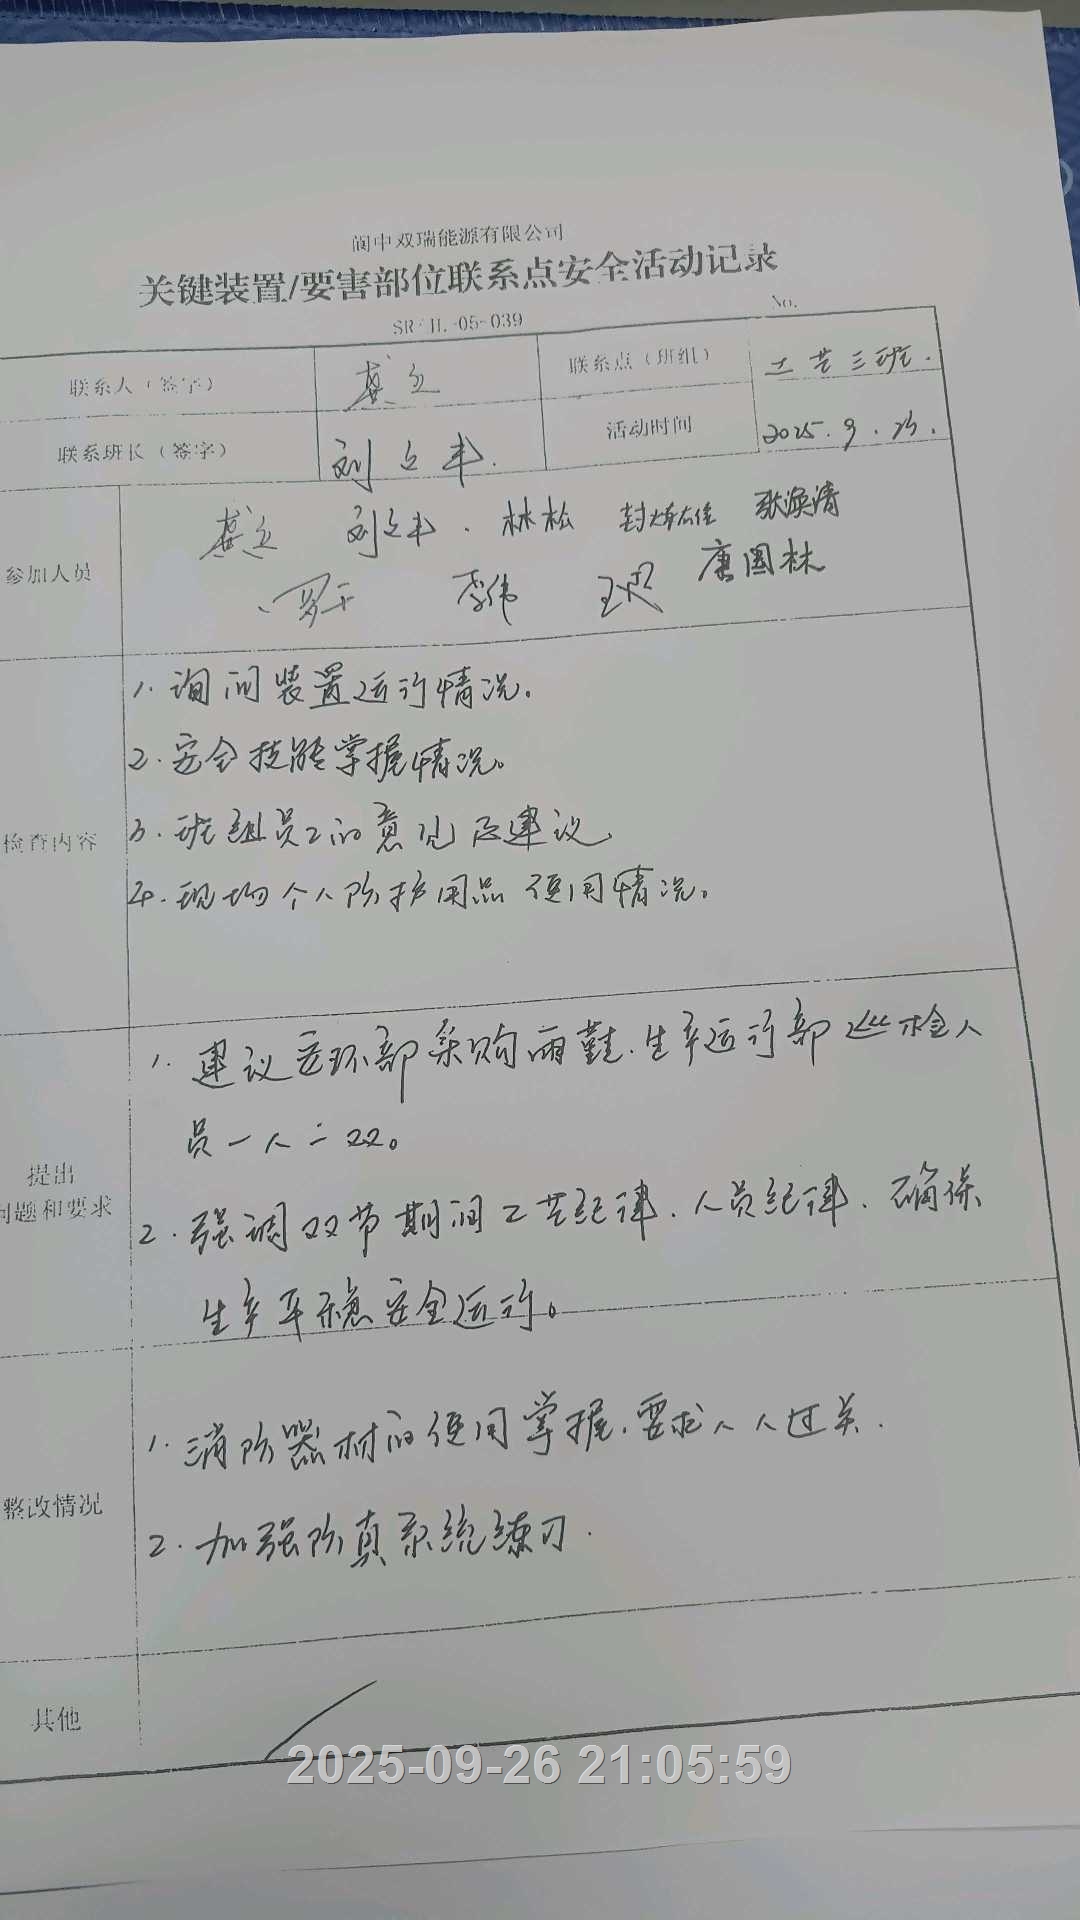 阆中双瑞能源有限公司
关键装置/要害部位联系点安全活动记录
SR/JL-05-039
No.
联系人（签字） 龚立 联系点（班组） 工艺三班.
联系班长（签字） 刘立丰. 活动时间 2025.9.
参加人员 龚立 刘立丰. 林松 张涣清
李伟 唐国林
检查内容
1. 询问装置运行情况。
2. 安全技能掌握情况。
3. 班组员工的意见及建议
4. 现场个人防护用品使用情况。
提出
问题和要求
1. 建议安环部采购雨鞋.生产运行部巡检人
员一人二双。
2. 强调双节期间工艺纪律.人员纪律.确保
生产平稳安全运行。
整改情况
1. 消防器材的使用掌握.要求人人过关.
2. 加强防真系统练习.
其他
2025-09-26 21:05:59